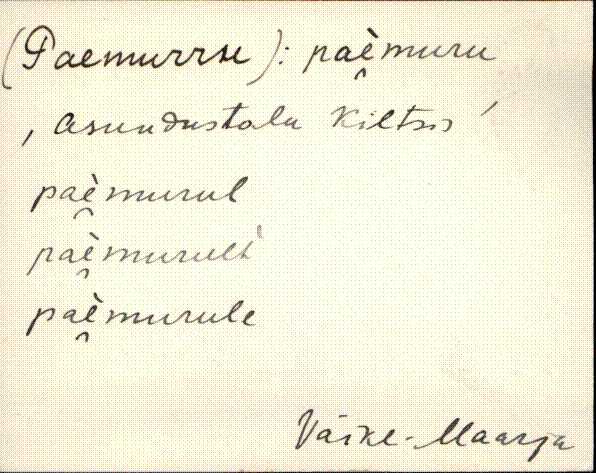 (Paemurru): paè̯muru
, asundustalu Kiltsis ´
paè̯murul
paè̯murult
paè̯murule
Väike-Maarja